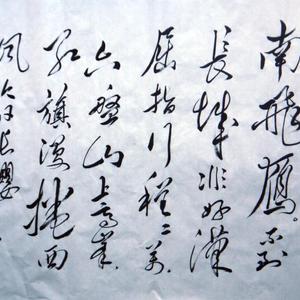 南飛鴈。不到
長城非好漢
屈指行程二萬
六盤山上高峯
紅旗漫捲西
風今日長纓